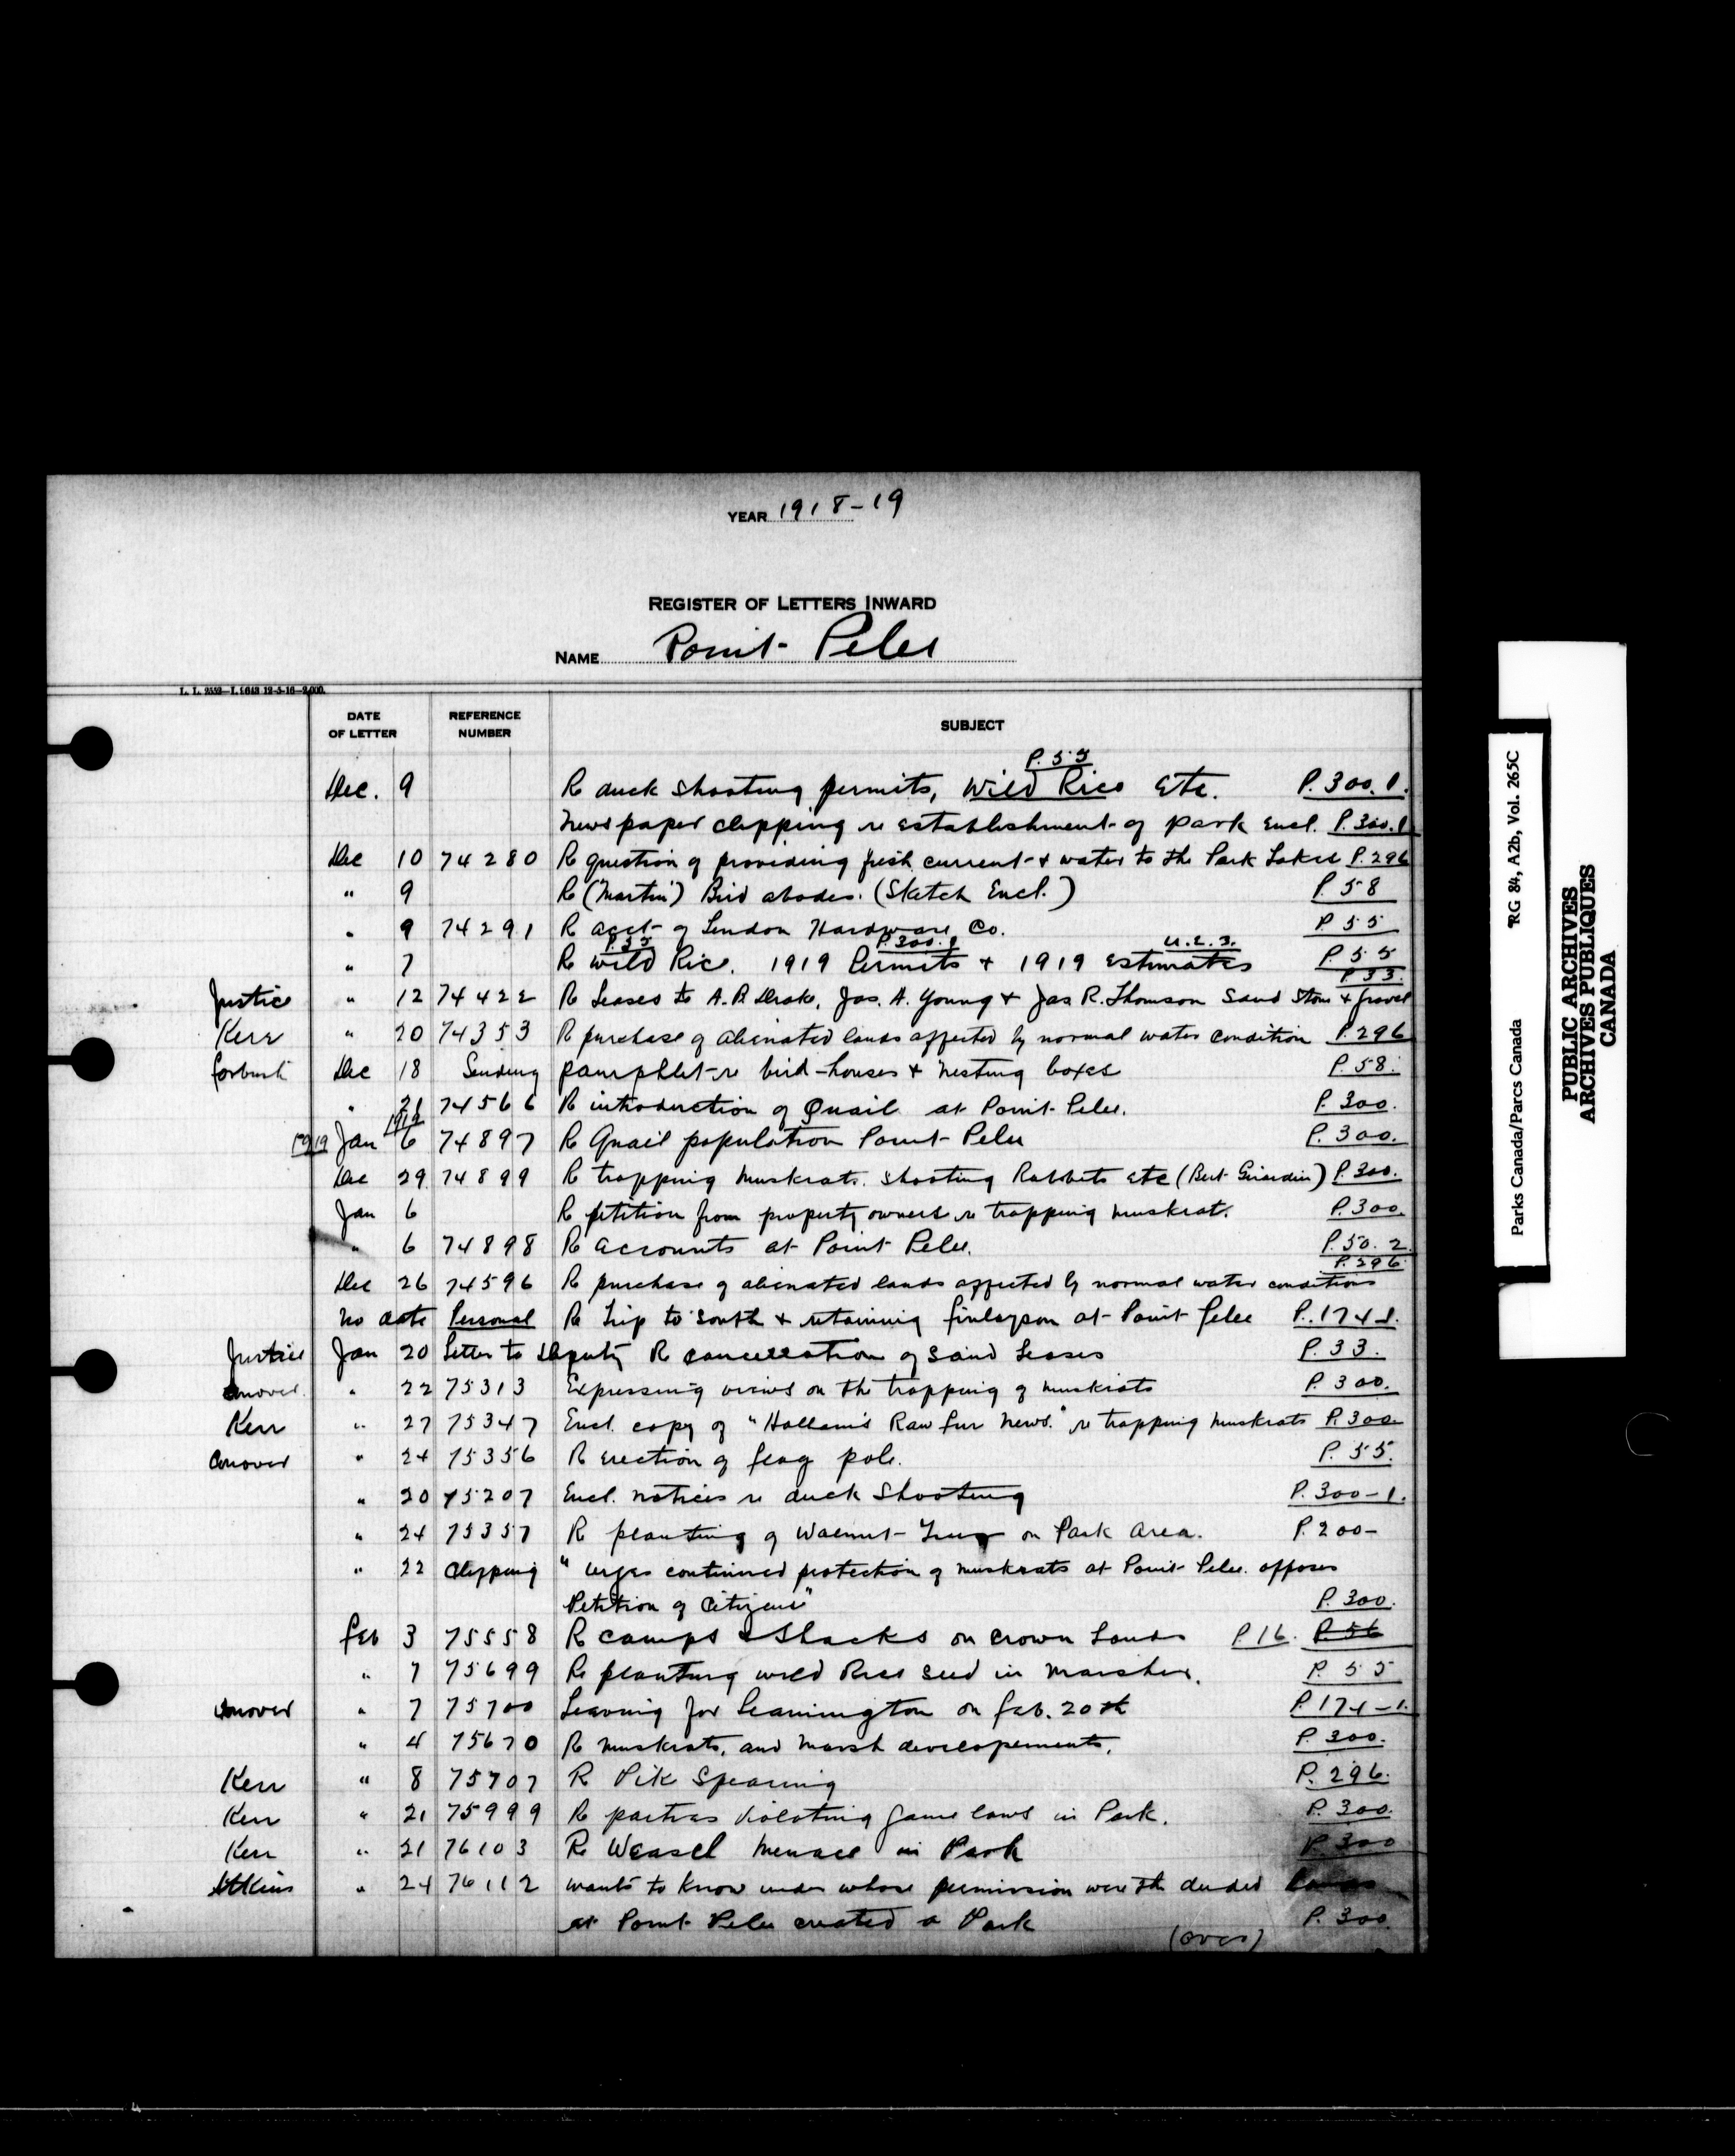 YEAR 1918-19
REGISTER OF LETTERS INWARD
NAME Point Pelee
L. L. 9552—I. 1648 12-5-16—2,000.
DATE OF LETTER REFERENCE NUMBER SUBJECT
P.55
Dec. 9 Re duck shooting permits, Wild Rice Etc. P.300.1.
Newspaper clipping re establishment of Park Encl. P.300.1
Dec 10 74280 Re question of providing fresh current & water to the Park Lakes P.296
" 9 Re (Martin) Bird abodes. (Sketch Encl.) P 58
" 9 74291 R acct of London Hardware Co. P 55
P.55 P.300.1 U.2.3.
" 7 Re Wild Rice. 1919 Permits & 1919 Estimates P 55
P 33.
Justice " 12 74422 Re Leases to A.R. Drake, Jas. A. Young & Jas R. Thomson Sand Stone & gravel
Kerr " 20 74353 R purchase of alienated lands affected by normal water condition P.296
Forbush Dec 18 Sending pamphlet re bird-houses & nesting boxes P.58.
" 21 74566 R introduction of Quail at Point Pelee. P.300.
1919
1919 Jan 6 74897 R Quail population Point Pelee P.300.
Dec 29 74899 R trapping Muskrats. shooting Rabbits etc (Bert Girardin) P.300.
Jan 6 R petition from property owners re trapping muskrat. P.300.
" 6 74898 R accounts at Point Pelee. P.50.2.
P.296.
Dec 26 74596 R purchase of alienated lands affected by normal water conditions
No date Personal R Trip to South & retaining Finlayson at Point Pelee P.174-1.
Justice Jan 20 Letter to Deputy R cancellation of Sand Leases P.33.
Conover " 22 75313 Expressing views on the trapping of muskrats P.300.
Kerr " 27 75347 Encl. copy of "Hallam's Raw Fur News." re trapping muskrats P.300.
Conover " 24 75356 R Erection of flag pole. P.55.
" 20 75207 Encl. notices re duck shooting P.300-1.
" 24 75357 R planting of Walnut Trees on Park Area. P.200-
" 22 Clipping "Urges continued protection of muskrats at Point Pelee. opposes
Petition of Citizens" P.300.
Feb 3 75558 R camps & Shacks on Crown Lands P.16. P.56
" 7 75699 Re planting wild Rice seed in Marshes. P.55
Conover " 7 75700 Leaving for Leamington on Feb. 20th P.174-1.
" 4 75670 R muskrats, and Marsh developements. P.300.
Kerr " 8 75707 R Pike Spearing P.296.
Kerr " 21 75999 R parties Violating Game laws in Park. P.300.
Kerr " 21 76103 R Weasel Menace in Park P.300
Atkins " 24 76112 wants to know under whose permission were the deeded
at Point Pelee created a Park P.300.
(over)
Parks Canada/Parcs Canada RG 84, A2b, Vol. 265C
PUBLIC ARCHIVES
ARCHIVES PUBLIQUES
CANADA